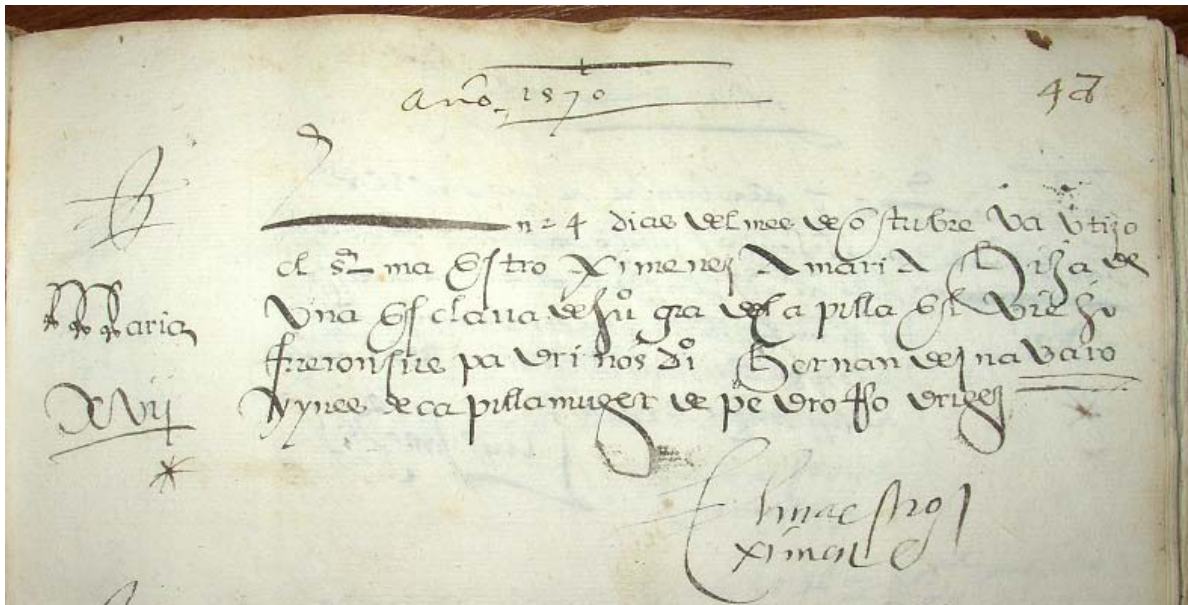 Año 1570
48
En 4 dias del mes de octubre bautizo
el sr maestro Ximenez A maria Hija de
Maria
Una Esclava de juo gra de capilla El Viejo
fueron sus padrinos do Hernandez navarro
XVII
Y ynes de capilla muger de pedro Rodriguez
El maestro
ximenez